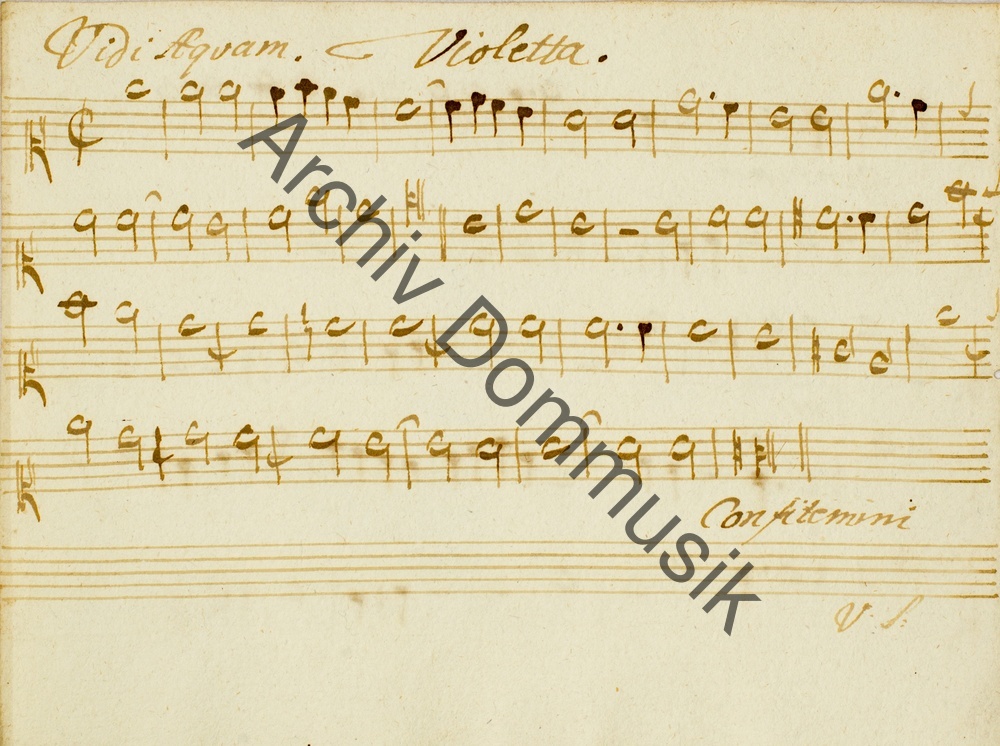 Vidi Aquam. Violetta.
Archiv Dommusik
Confitemini
V. S: